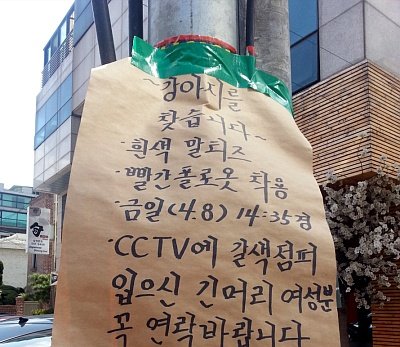 ~강아지를
찾습니다~
·흰색 말티즈
·빨간폴로옷 착용
·금일(4.8) 14:35경
·CCTV에 갈색점퍼
입으신 긴머리 여성분
꼭 연락바랍니다